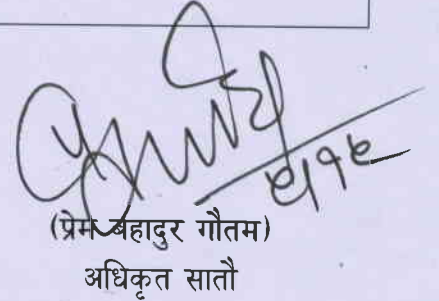 ५।१९
(प्रेम बहादुर गौतम)
अधिकृत सातौ